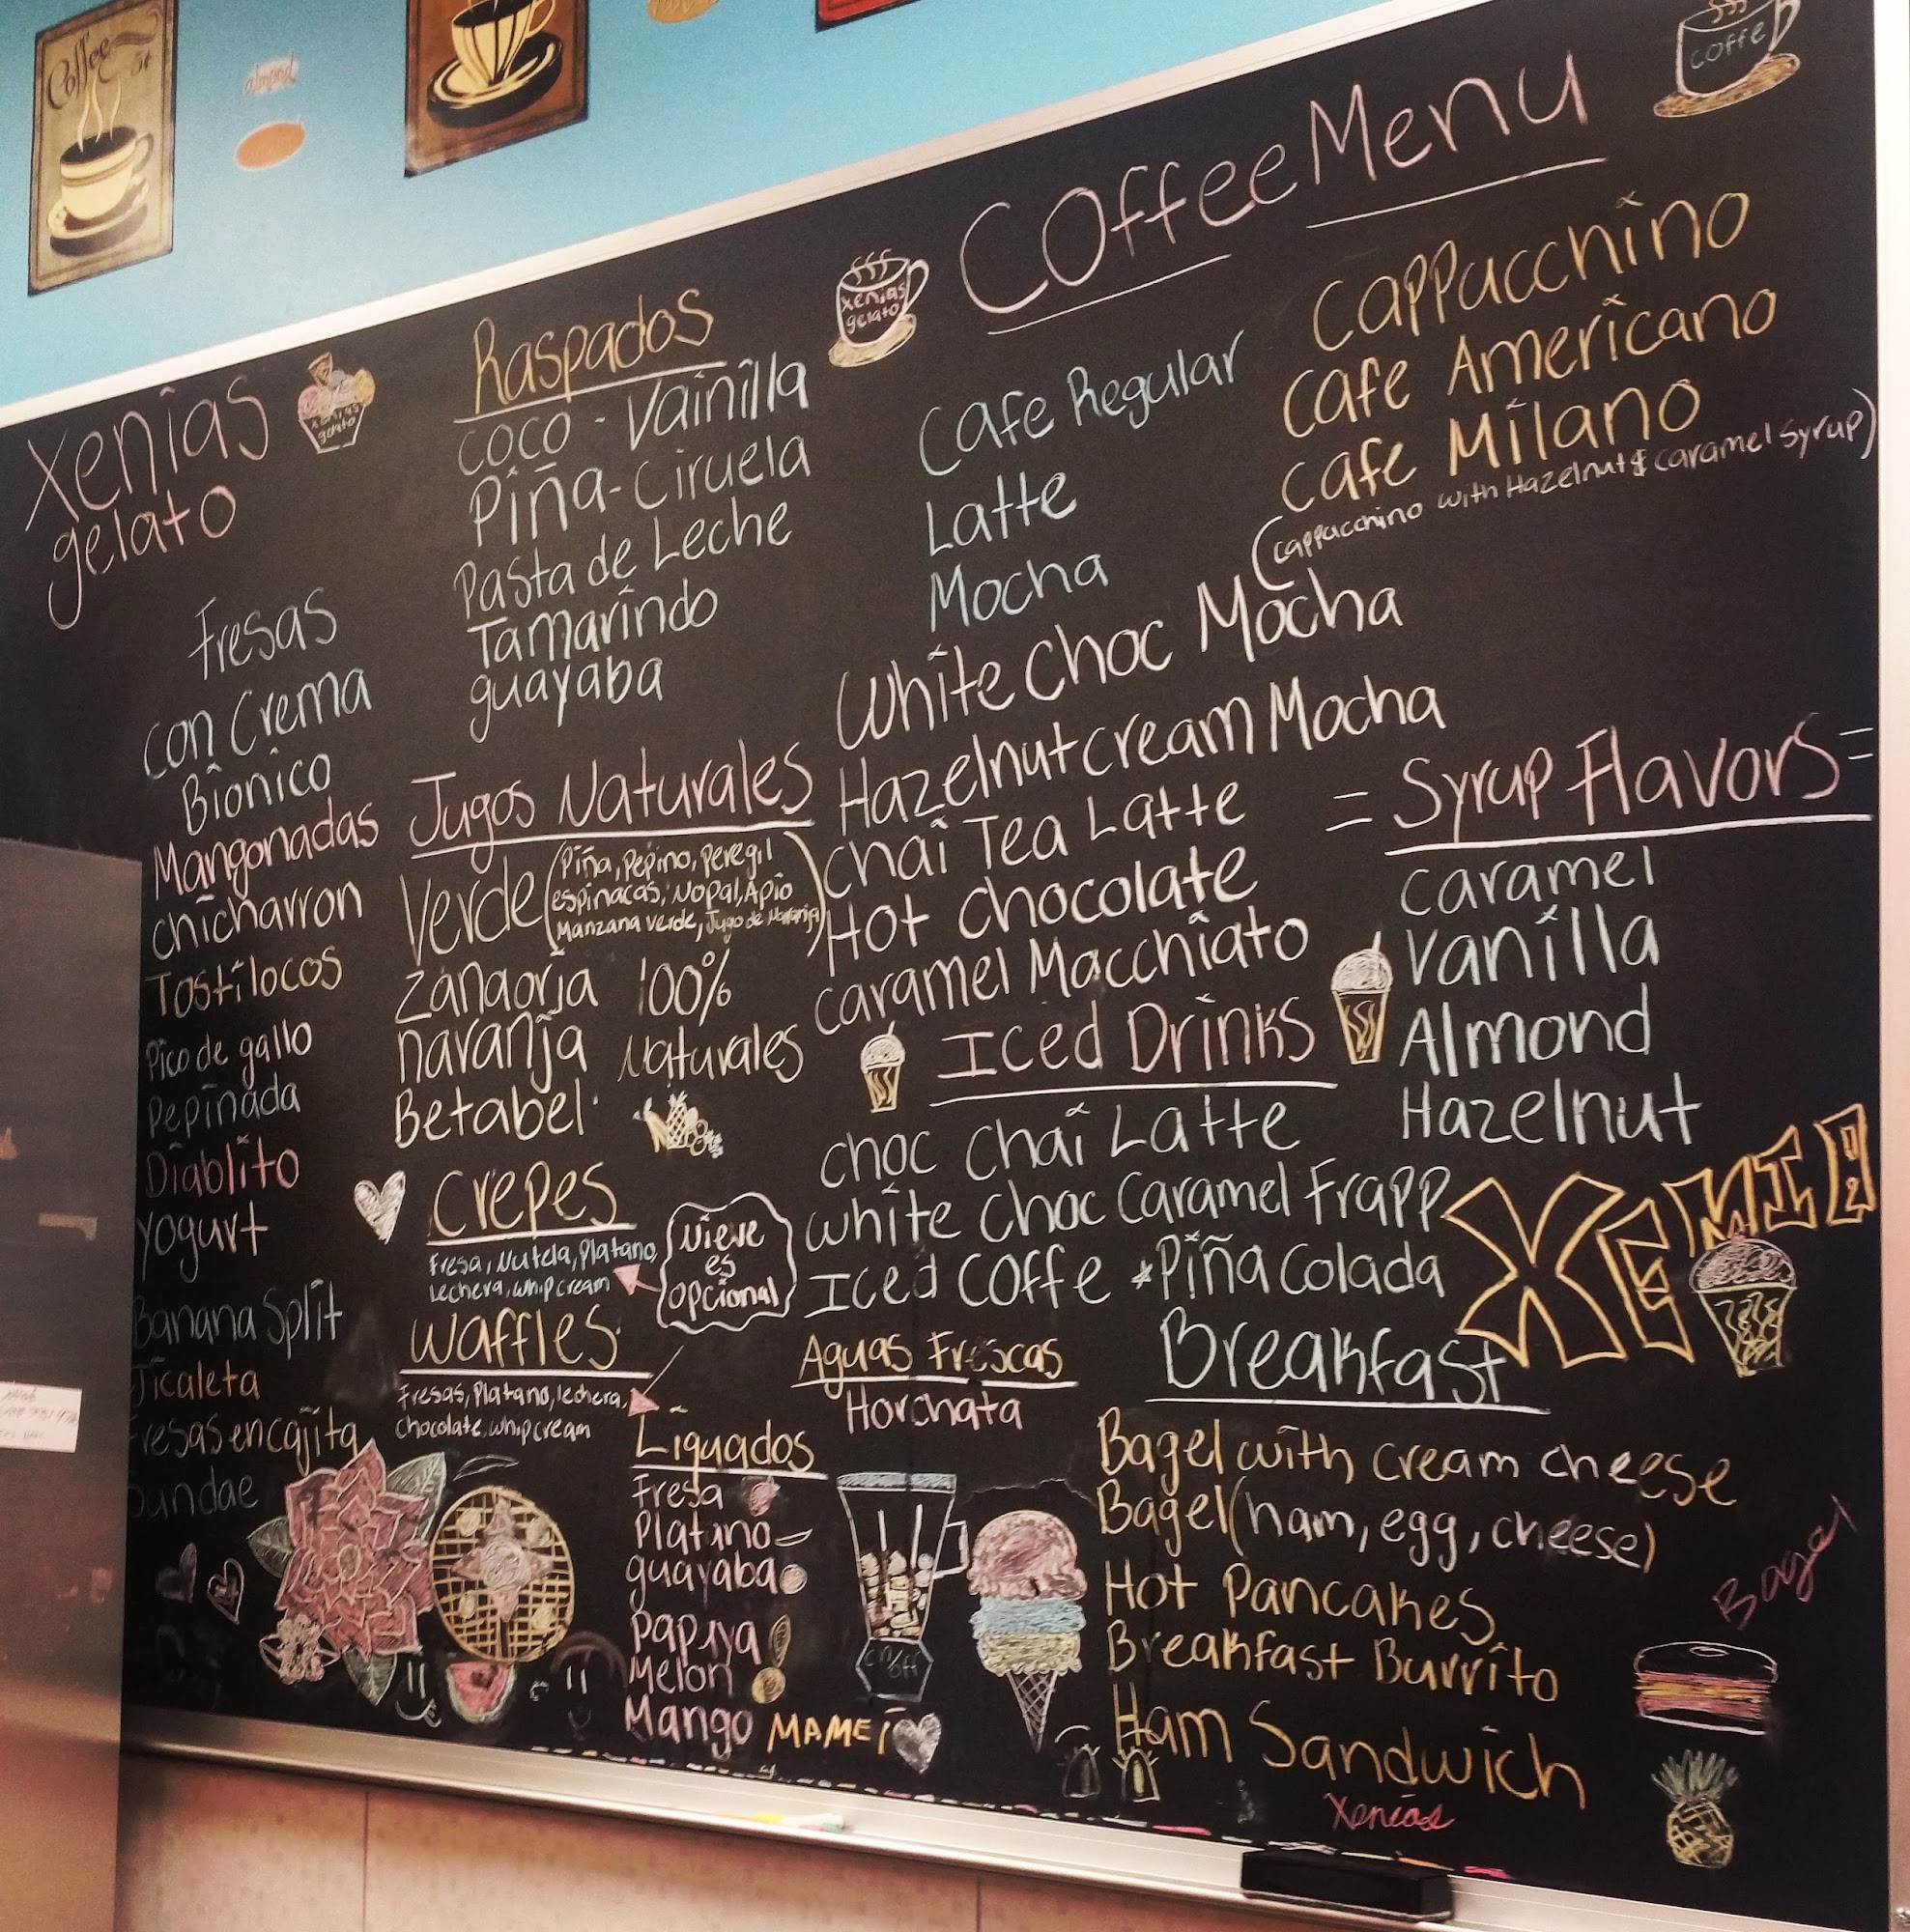 Coffee
almond
Xenias
gelato
Xenias
gelato
Fresas
con Crema
Bionico
Mangonadas
chicharron
Tostilocos
Pico de gallo
Pepinada
Diablito
Yogurt
Banana Split
Jicaleta
Fresas en cajita
Sundae
Raspados
coco - Vainilla
Piña - Ciruela
Pasta de Leche
Tamarindo
guayaba
Jugos Naturales
Verde (Piña, Pepino, Peregil
espinacas, Nopal, Apio
Manzana verde, Jugo de Naranja)
Zanaorja 100%
naranja Naturales
Betabel
Crepes
Fresa, Nutela, Platano,
Lechera, whip cream
Nieve
es
opcional
Waffles
Fresas, Platano, lechera,
chocolate, whip cream
Liquados
Fresa
Platino
guayaba
Papaya
Melon
Mango MAMEI
Aguas Frescas
Horchata
on/off
xenias
gelato
Coffee Menu
coffe
Cafe Regular
Latte
Mocha
White Choc Mocha
Hazelnut cream Mocha
Chai Tea Latte
Hot chocolate
caramel Macchiato
Cappucchino
Cafe Americano
Cafe Milano
(Cappucchino with Hazelnut & caramel syrup)
= Syrup Flavors =
Caramel
Vanilla
Almond
Hazelnut
Iced Drinks
choc Chai Latte
white choc Caramel Frapp
Iced Coffe *Piña Colada
XENIA
Breakfast
Bagel with cream cheese
Bagel (ham, egg, cheese)
Hot Pancakes
Breakfast Burrito
Ham Sandwich
Bagel
Xenias